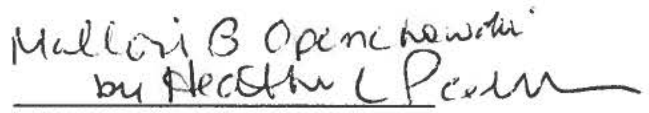 Mallori B Openchowski
by Heather L